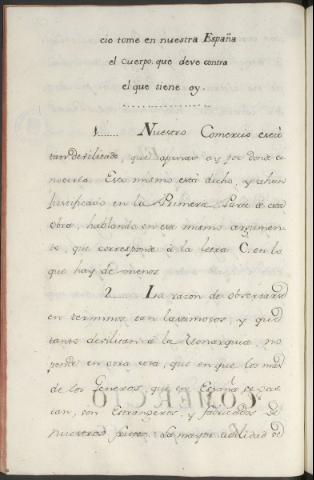 cio tome en nuestra España
el cuerpo, que deve contra
el que tiene oy.
1...... Nuestro Comercio está
tan devilitado, que apenas ay por donde co
nocerlo. Esto mismo está dicho, y ahun
justificado en la Primera Parte de esta
obra, hablando en este mismo argumen
to, que corresponde à la letra C. en lo
que hay de menos.
2...... La razon de observarse
en terminos tan lastimosos, y que
tanto devilitan à la Monarquia, no
pende en otra cosa, que en que los mas
de los Generos, que en España se gas
tan, son Estrangeros, y fabricados de
nuestros frutos. La mayor utilidad de